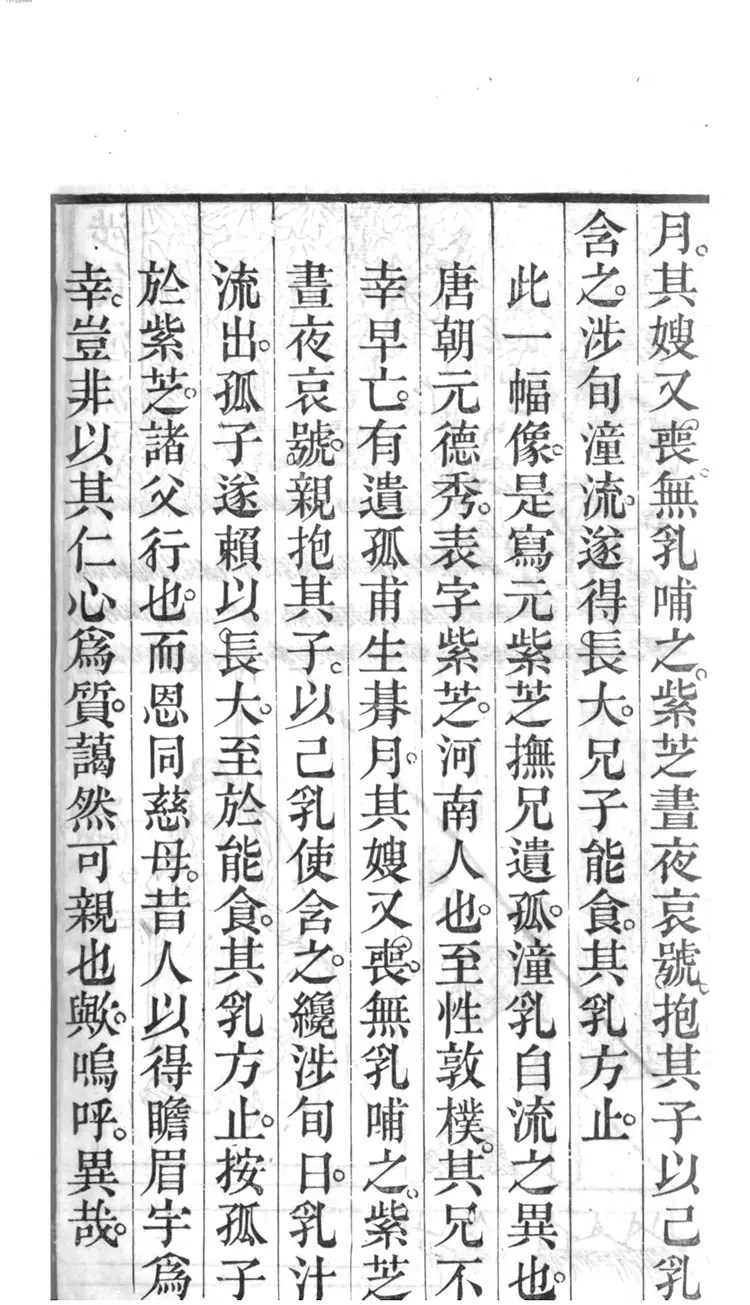 月。其嫂又喪。無乳哺之。紫芝晝夜哀號。抱其子以己乳
含之。涉旬湩流。遂得長大。兄子能食。其乳方止。
此一幅像。是寫元紫芝撫兄遺孤。湩乳自流之異也。
唐朝元德秀。表字紫芝。河南人也。至性敦樸。其兄不
幸早亡。有遺孤甫生朞月。其嫂又喪。無乳哺之。紫芝
晝夜哀號。親抱其子。以己乳使含之。纔涉旬日。乳汁
流出。孤子遂賴以長大。至於能食。其乳方止。按孤子
於紫芝。諸父行也。而恩同慈母。昔人以得瞻眉宇為
幸。豈非以其仁心爲質。藹然可親也歟。嗚呼。異哉。